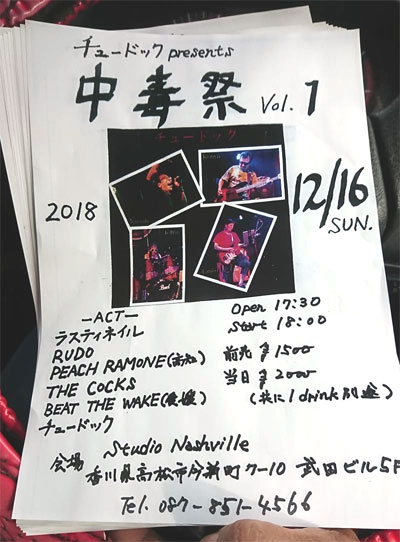 チュードック presents
中毒祭 Vol.1
チュードック
2018
12/16
SUN.
—ACT—
ラスティネイル
RUDO
PEACH RAMONE(高知)
THE COCKS
BEAT THE WAKE(愛媛)
チュードック
Open 17:30
Start 18:00
前売 ¥1500
当日 ¥2000
(共に1drink別途)
会場 Studio Nashville
香川県高松市今新町7-10 武田ビル5F
Tel. 087-851-4566